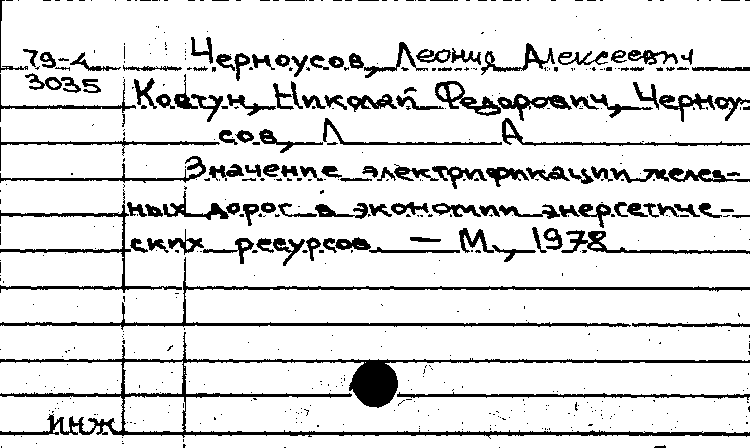 79-4 Черноусов, Леонид Алексеевич
3035 Ковтун, Николай Федорович, Черноу-
сов, Л А
Значение электрификации желез-
ных дорог в экономии энергетиче-
ских ресурсов. — М., 1978.
инж